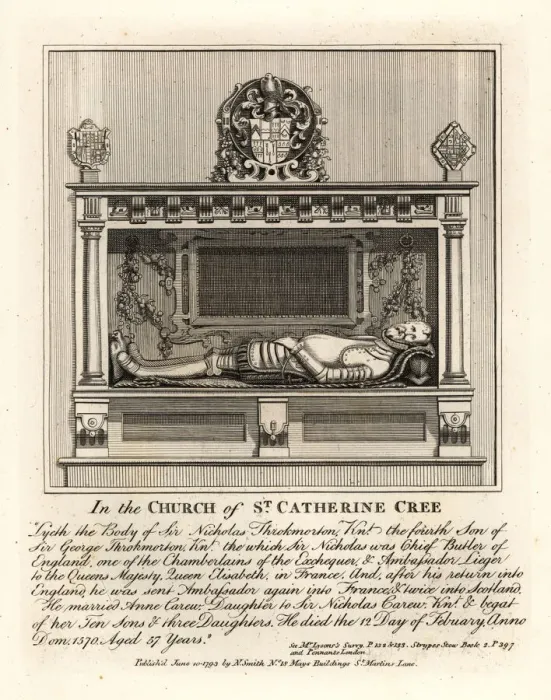 In the CHURCH of ST. CATHERINE CREE
"Lyeth the Body of Sir Nicholas Throkmorton, Knt. the fourth Son of
Sir George Throkmorton, Knt. the which Sir Nicholas was Chief Butler of
England, one of the Chamberlains of the Exchequer, & Ambasador Lieger
to the Queens Majesty, Queen Elisabeth, in France. And, after his return into
England, he was sent Ambasador again into France, & twice into Scotland.
He married Anne Carew, Daughter to Sir Nicholas Carew, Knt. & begat
of her Ten Sons & three Daughters. He died the 12 Day of Febuary, Anno
Dom. 1570. Aged 57 Years."
See Mr. Lysons's Surry. P. 132 & 133. Strypes Stow Book 2. P 397
and Pennants London.
Publish'd June 10 1793 by N. Smith No. 18 Mays Buildings St. Martins Lane.